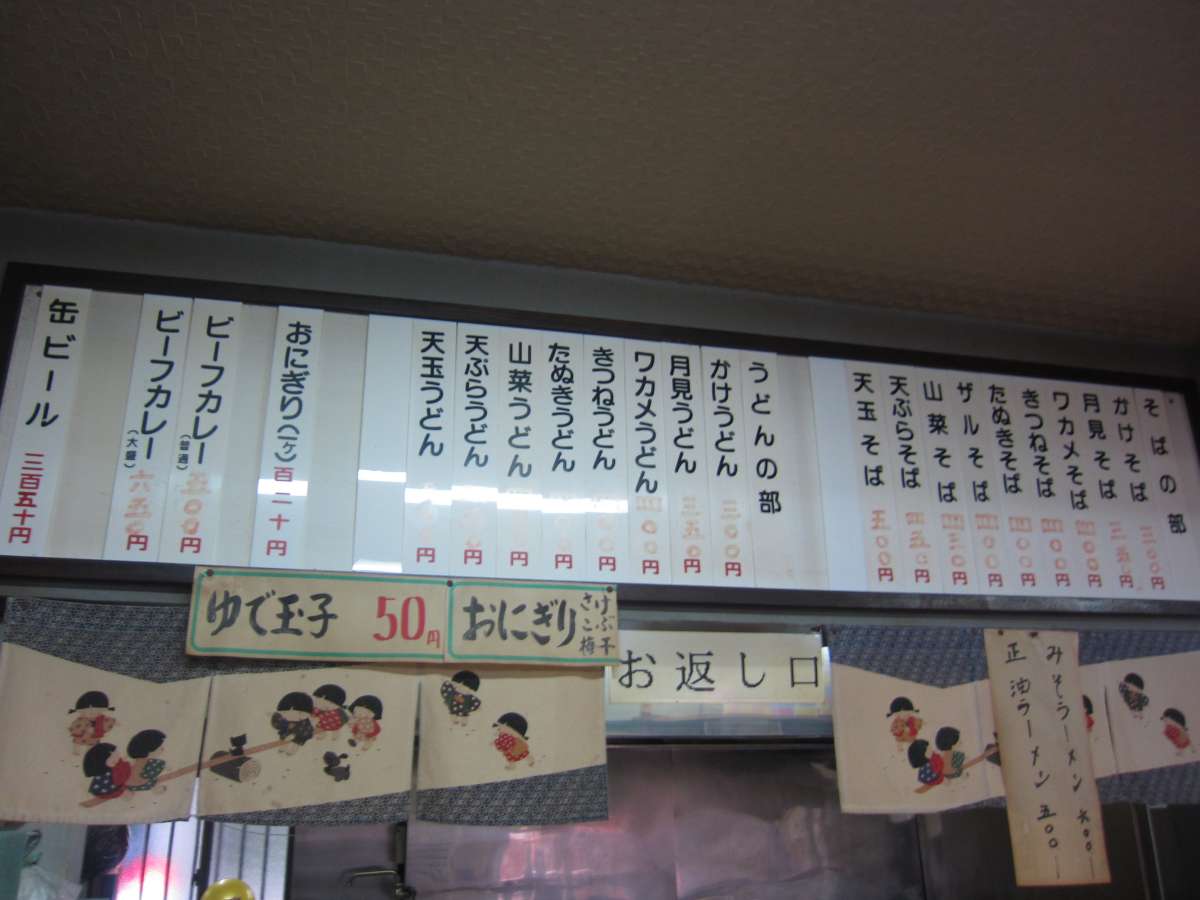 そばの部
かけそば 三00円
月見そば 三五0円
ワカメそば 四00円
きつねそば 四00円
たぬきそば 四00円
ザルそば 四00円
山菜そば 四三0円
天ぷらそば 四五0円
天玉そば 五00円
うどんの部
かけうどん 三00円
月見うどん 三五0円
ワカメうどん 四00円
きつねうどん 円
たぬきうどん 円
山菜うどん 円
天ぷらうどん 円
天玉うどん 円
おにぎり(一ヶ) 百二十円
ビーフカレー(普通) 五00円
ビーフカレー(大盛) 六五0円
缶ビール 三百五十円
ゆで玉子 50円
おにぎり さけ こぶ 梅干
お返し口
みそラーメン 六00
正油ラーメン 五00